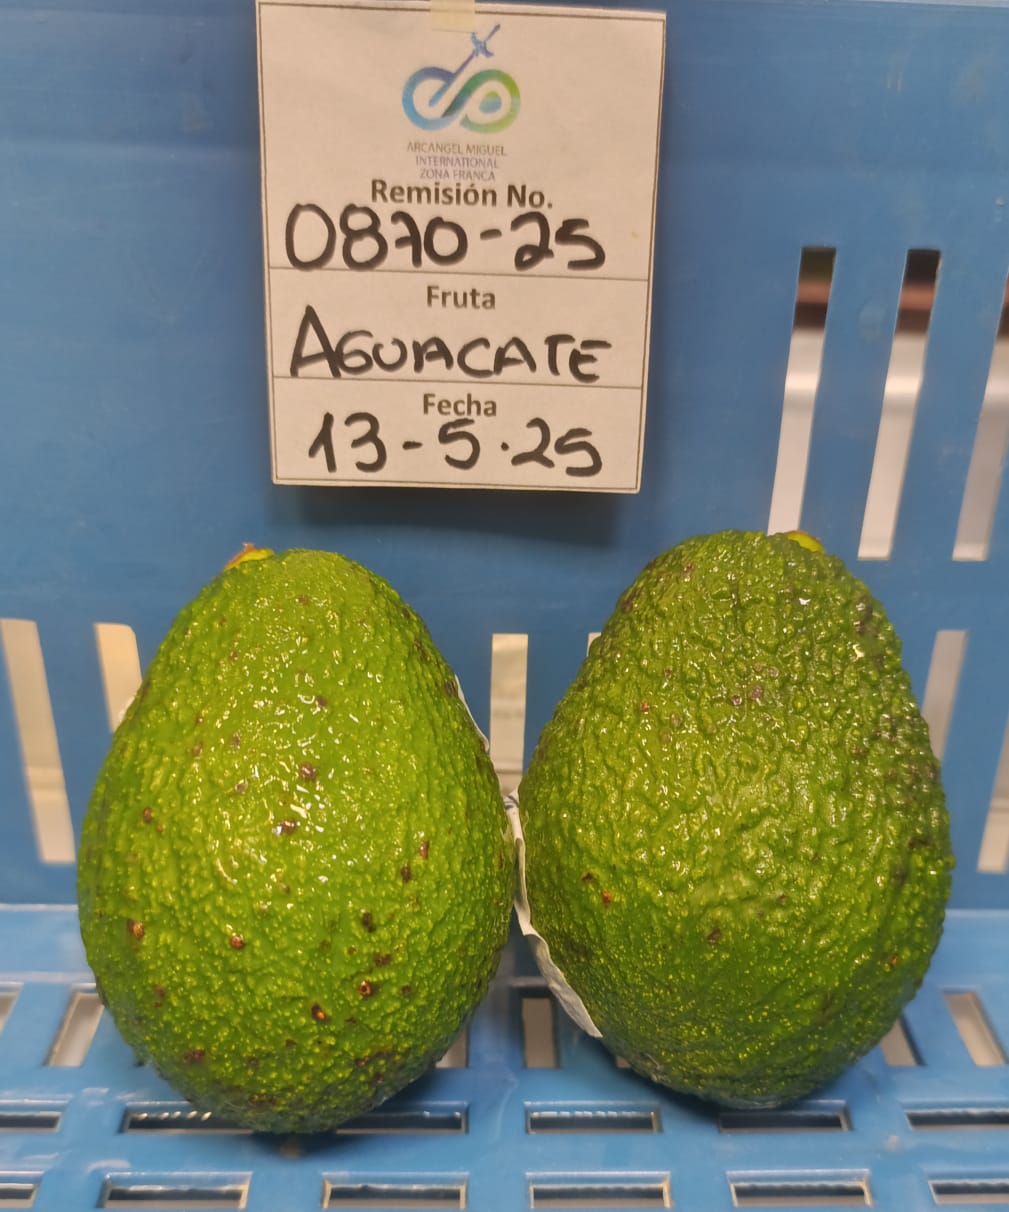 ARCANGEL MIGUEL
INTERNATIONAL
ZONA FRANCA
Remisión No.
0870-25
Fruta
AGUACATE
Fecha
13-5.25